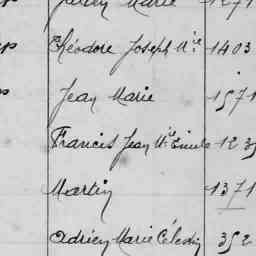 Marie 1271
Théodore Joseph M.ie 1403
Jean Marie 1571
Francis Jean M.ie Emile 123
Martin 1371
Adrien Marie Célestin 352